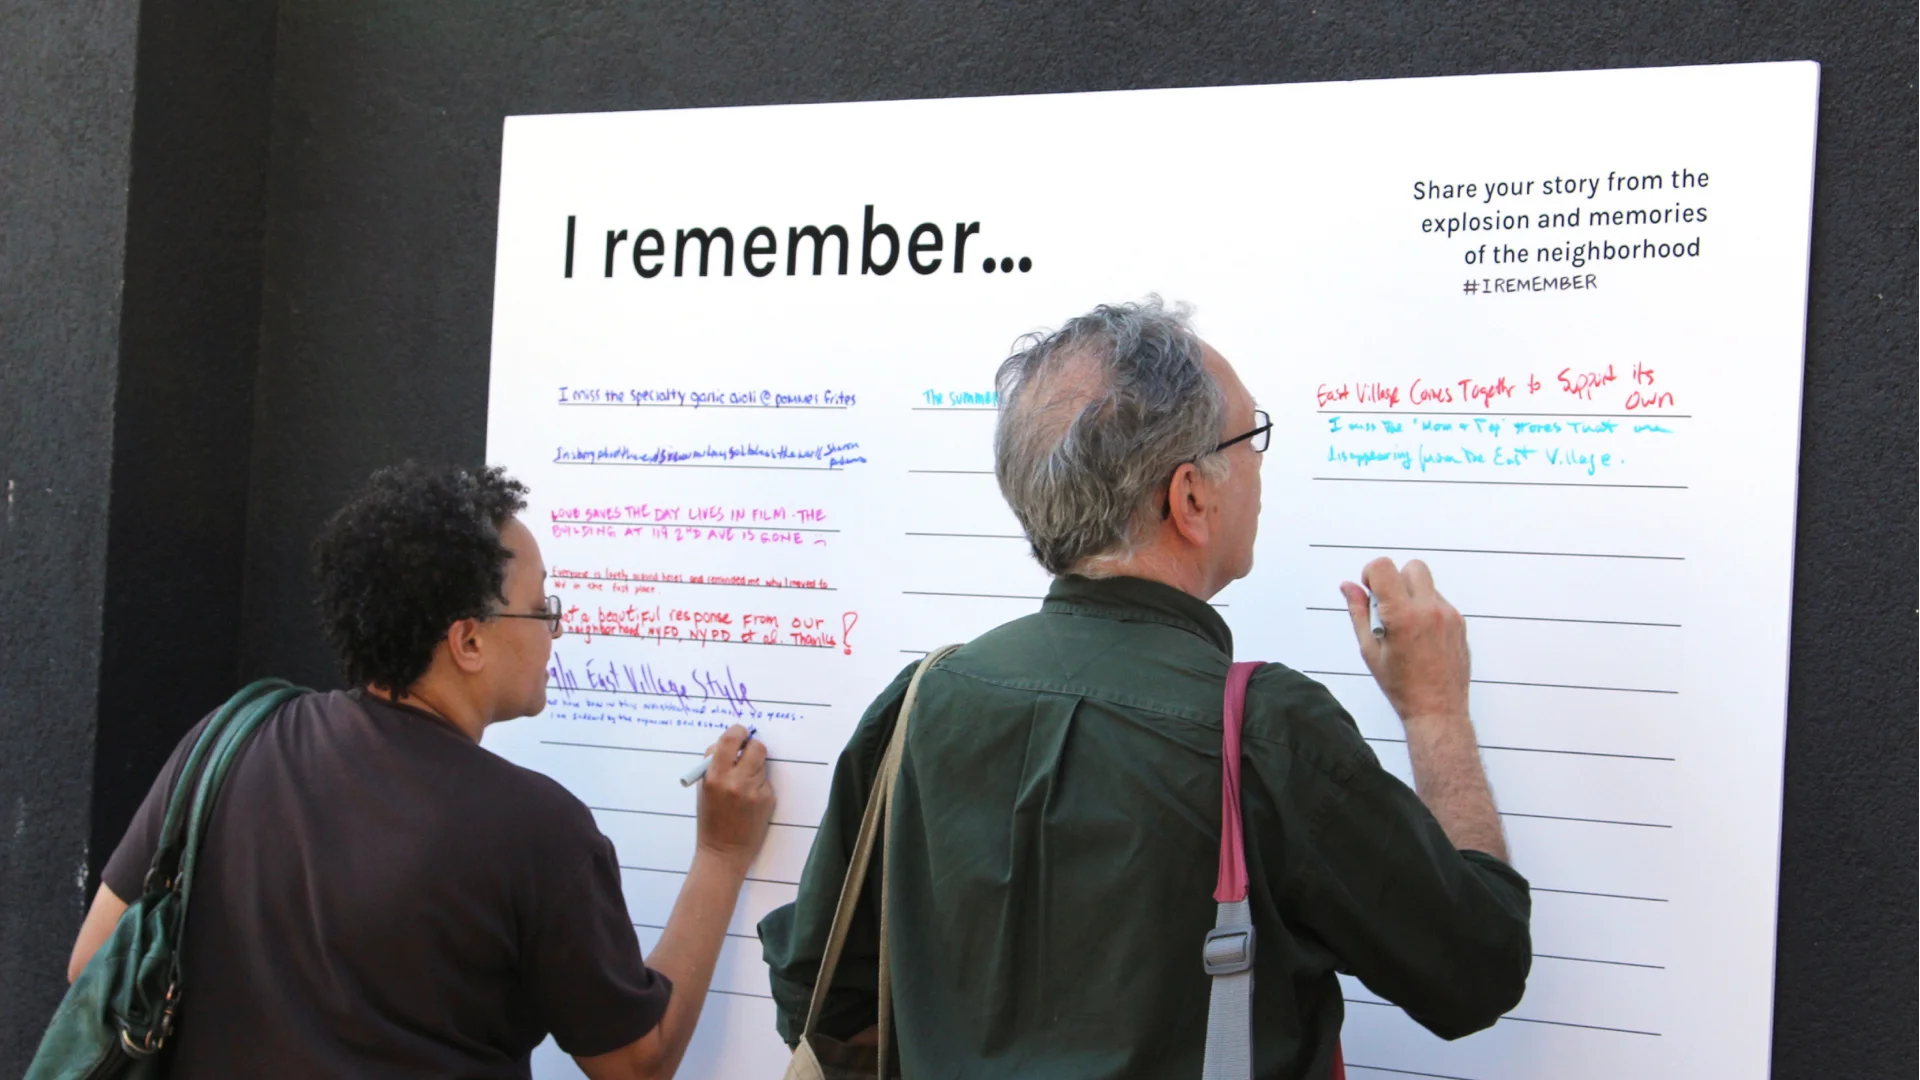 I remember...
Share your story from the
explosion and memories
of the neighborhood
#IREMEMBER
I miss the specialty garlic aioli @ pommes frites
Sharon
LOVE SAVES THE DAY LIVES IN FILM - THE
BUILDING AT 119 2ND AVE IS GONE :(
Everyone is lovely around here and reminded me why I moved to
NY in the first place.
a beautiful response from our
neighborhood, NYFD, NYPD et al. Thanks!
9/11 East Village Style
have been in this neighborhood almost 40 years.
I am by the
The summer
East Village Comes Together to Support its
own
I miss the "Mom & Pop" stores that are
disappearing from the East Village.